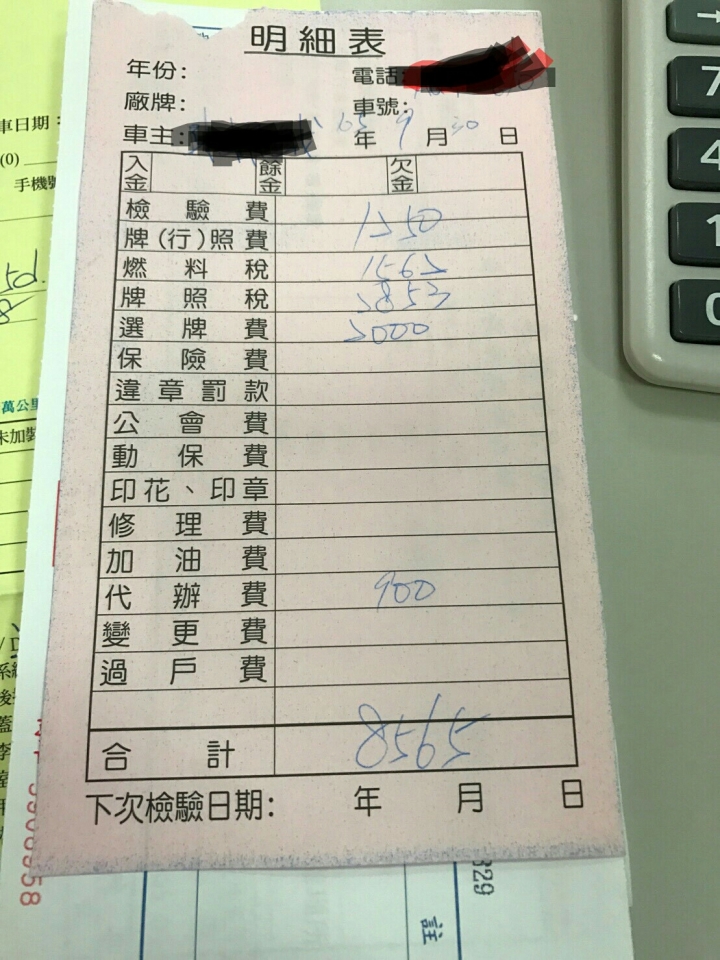 明細表
年份: 電話:
廠牌: 車號:
車主: 年 9 月 30 日
入金 餘金 欠金
檢驗費
牌(行)照費 1250
燃料稅 1562
牌照稅 2853
選牌費 2000
保險費
違章罰款
公會費
動保費
印花、印章
修理費
加油費
代辦費 900
變更費
過戶費
合計 8565
下次檢驗日期: 年 月 日
車日期:
(0)
手機號
萬公里
未加裝
329
註
7
4
1
0